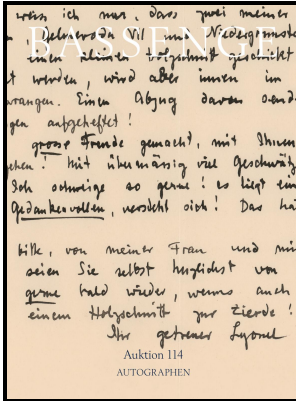 weiss ich nur, dass zwei meiner
BASSENGE
Deborada VII und Niedergrunste
einen kleinen Holzschnitt geschickt
t werden, wird aber innen im
wrangen. Einen Abzug davon send
gen aufgeheftet!
grosse Freude gemacht, mit Ihnen
gehen! Mit übermässig viel Geschwätz
Ich schweige so gerne! es liegt ein
Gedankenvollen, versteht sich! Das hä
bitte, von meiner Frau und mi
seien Sie selbst herzlichst von
gerne bald wieder, wenns auch
einem Holzschnitt zur Zierde!
Ihr getreuer Lyonel
Auktion 114
AUTOGRAPHEN